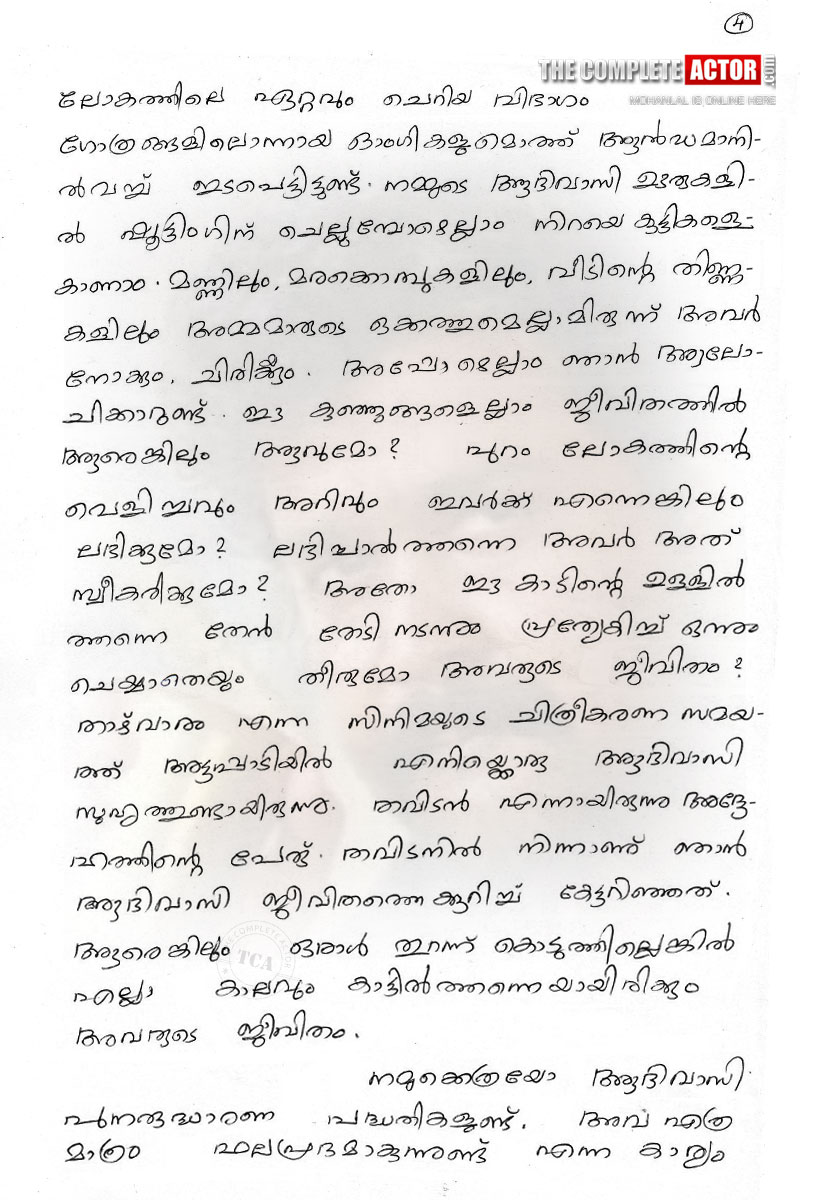 4
THE COMPLETE ACTOR .COM
MOHANLAL IS ONLINE HERE
ലോകത്തിലെ ഏറ്റവും ചെറിയ വിഭാഗം
ഗോത്രങ്ങളിലൊന്നായ ഓംഗികളുമൊത്ത് ആൻഡമാനി-
ൽവച്ച് ഇടപെട്ടിട്ടുണ്ട്. നമ്മുടെ ആദിവാസി ഊരുകളി-
ൽ ഷൂട്ടിംഗിന് ചെല്ലുമ്പോഴെല്ലാം നിറയെ കുട്ടികളെ-
കാണാം. മണ്ണിലും, മരക്കൊമ്പുകളിലും, വീടിന്റെ തിണ്ണ-
കളിലും അമ്മമാരുടെ ഒക്കത്തുമെല്ലാമിരുന്ന് അവർ
നോക്കും, ചിരിക്കും. അപ്പോഴെല്ലാം ഞാൻ ആലോ-
ചിക്കാറുണ്ട്. ഈ കുഞ്ഞുങ്ങളെല്ലാം ജീവിതത്തിൽ
ആരെങ്കിലും ആവുമോ? പുറം ലോകത്തിന്റെ
വെളിച്ചവും അറിവും ഇവർക്ക് എന്നെങ്കിലും
ലഭിക്കുമോ? ലഭിച്ചാൽത്തന്നെ അവർ അത്
സ്വീകരിക്കുമോ? അതോ ഈ കാടിന്റെ ഉള്ളിൽ
ത്തന്നെ തേൻ തേടി നടന്നും പ്രത്യേകിച്ച് ഒന്നും
ചെയ്യാതെയും തീരുമോ അവരുടെ ജീവിതം?
താഴ്‌വാരം എന്ന സിനിമയുടെ ചിത്രീകരണ സമയ-
ത്ത് അട്ടപ്പാടിയിൽ എനിയ്ക്കൊരു ആദിവാസി
സുഹൃത്തുണ്ടായിരുന്നു. തവിടൻ എന്നായിരുന്നു അദ്ദേ-
ഹത്തിന്റെ പേര്. തവിടനിൽ നിന്നാണ് ഞാൻ
ആദിവാസി ജീവിതത്തെക്കുറിച്ച് കേട്ടറിഞ്ഞത്.
ആരെങ്കിലും ഒരാൾ തുറന്ന് കൊടുത്തില്ലെങ്കിൽ
എല്ലാ കാലവും കാട്ടിൽത്തന്നെയായിരിക്കും
അവരുടെ ജീവിതം.
നമുക്കെത്രയോ ആദിവാസി
പുനരുദ്ധാരണ പദ്ധതികളുണ്ട്. അവ എത്ര
മാത്രം ഫലപ്രദമാകുന്നുണ്ട് എന്ന കാര്യം
TCA